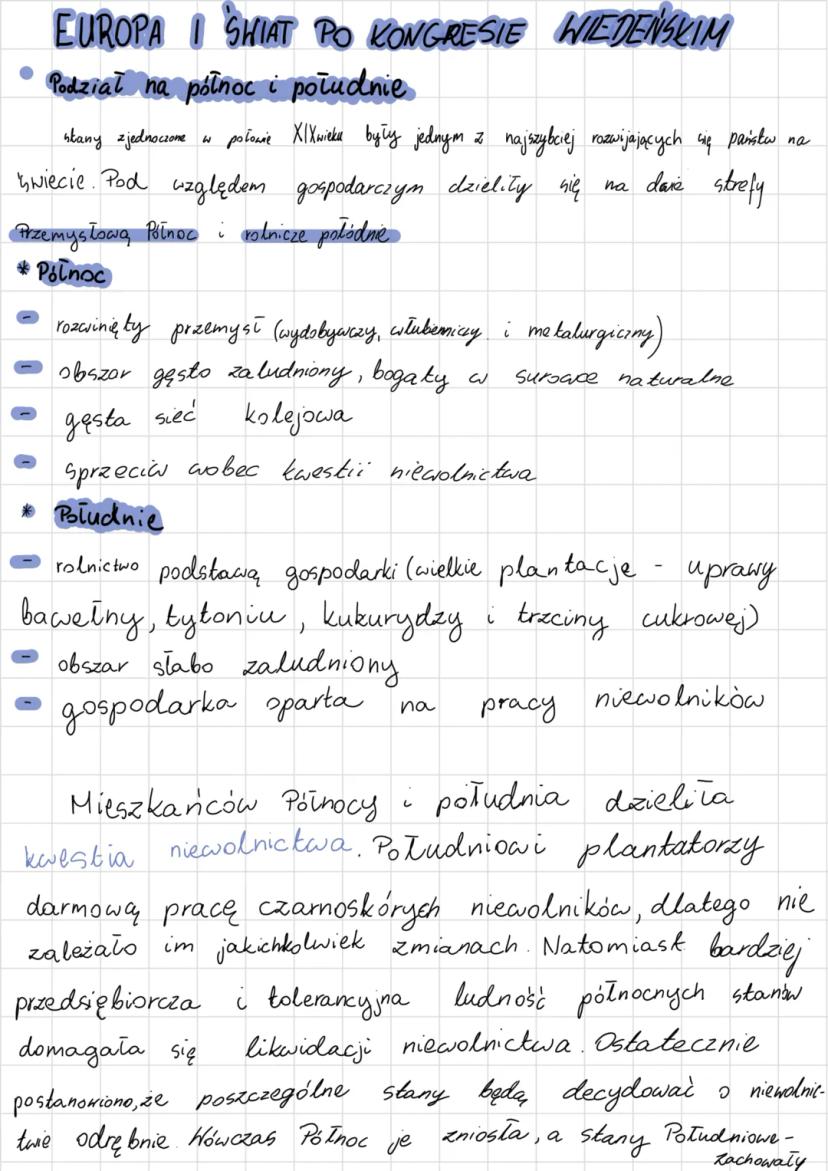 EUROPA I ŚWIAT PO KONGRESIE WIEDEŃSKIM
• Podział na północ i południe
stany zjednoczone w połowie XIX wieku były jednym z najszybciej rozwijających się państw na
świecie. Pod względem gospodarczym dzieliły się na dwie strefy
Przemysłową Północ i rolnicze połódnie
* Północ
- rozwinięty przemysł (wydobywczy, włókienniczy i metalurgiczny)
- obszar gęsto zaludniony, bogaty w surowce naturalne
- gęsta sieć kolejowa
- sprzeciw wobec kwestii niewolnictwa
* Południe
- rolnictwo podstawą gospodarki (wielkie plantacje - uprawy
bawełny, tytoniu, kukurydzy i trzciny cukrowej)
- obszar słabo zaludniony
- gospodarka oparta na pracy niewolników
Mieszkańców Północy i południa dzieliła
kwestia niewolnictwa. Południowi plantatorzy
darmową pracę czarnoskórych niewolników, dlatego nie
zależało im jakichkolwiek zmianach. Natomiast bardziej
przedsiębiorcza i tolerancyjna ludność północnych stanów
domagała się likwidacji niewolnictwa. Ostatecznie
postanowiono, że poszczególne stany będą decydować o niewolnic-
twie odrębnie. Wówczas Północ je zniosła, a stany Południowe -
zachowały